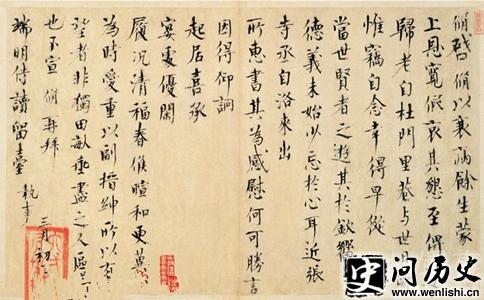 脩啓脩以衰病餘生蒙
上恩寬假哀其懇至俾
歸老自杜門里巷與世
惟竊自念幸得早從
當世賢者之遊其於欽嚮
德義未始少忘於心耳近張
寺丞自洛來出
所惠書其為感慰何可勝言
因得仰詢
起居喜承
宴處優閑
履況清福春候暄和更冀
為時愛重以副搢紳所以有
望者非獨田畝垂盡之人區區
也不宣脩再拜
端明侍讀留臺 執事
三月初二
史 问历史
www.wenlishi.cn